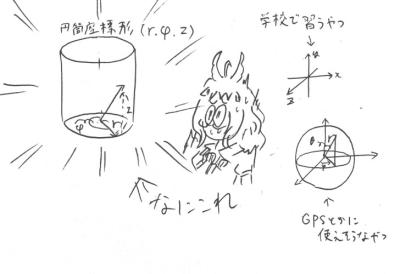 円筒座標形(r.φ.z)
z
φ
r
なにこれ
学校で習うやつ
y
x
z
θ
r
φ
GPSとかに
使えそうなやつ